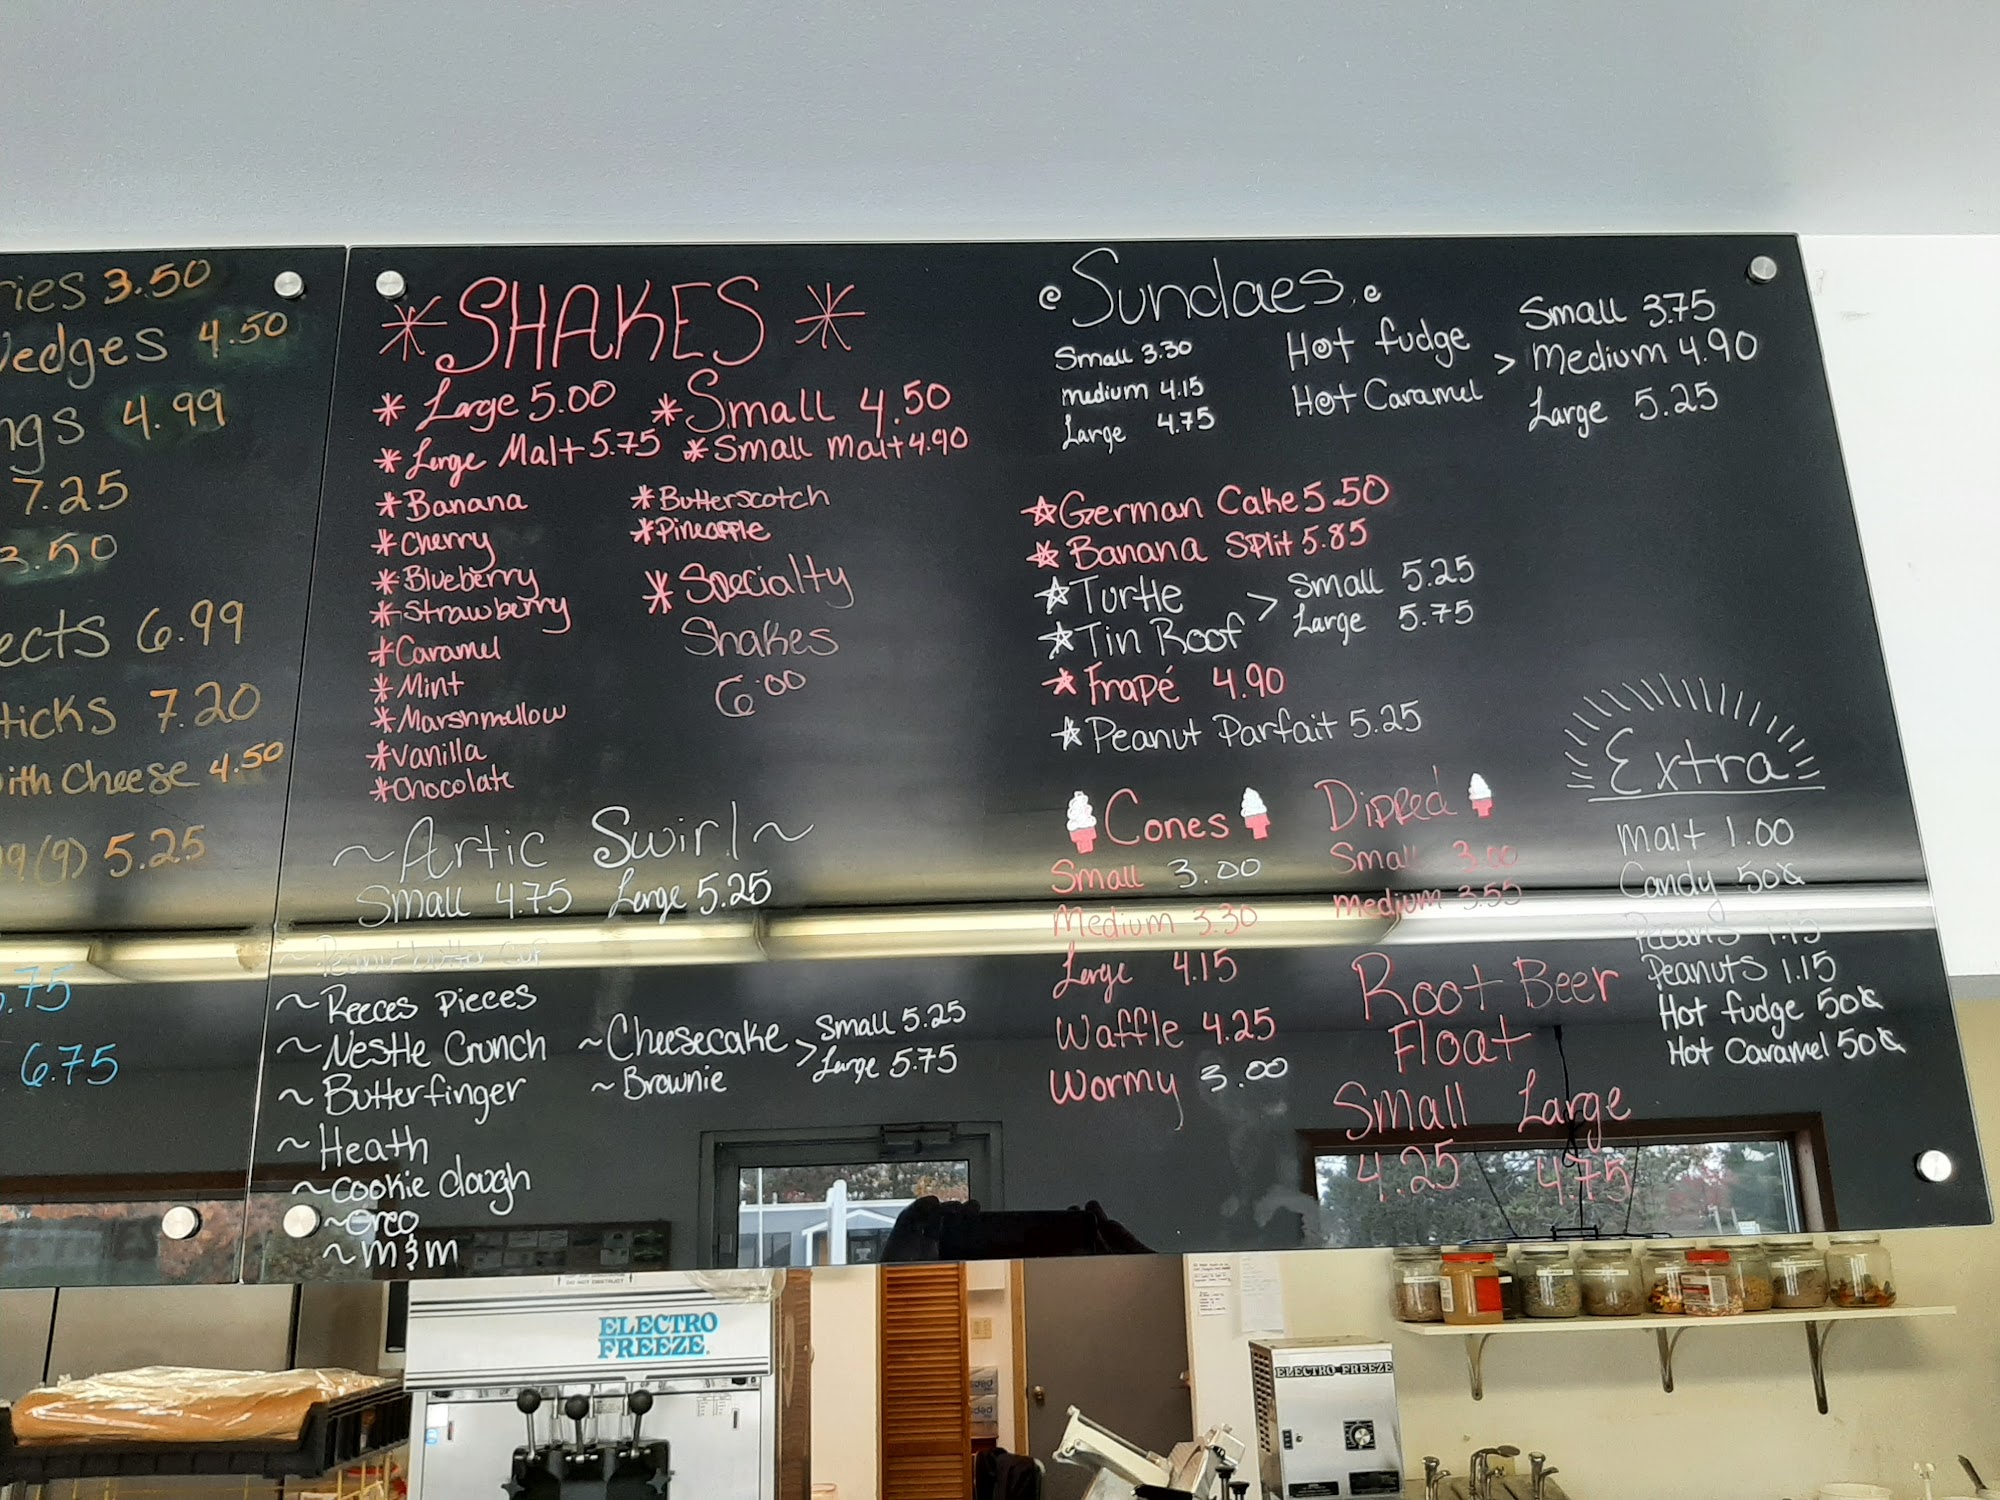 ries 3.50
edges 4.50
ngs 4.99
7.25
3.50
ects 6.99
ticks 7.20
ith Cheese 4.50
(9) 5.25
.75
6.75
SHAKES
Large 5.00 Small 4.50
Large Malt 5.75 Small malt 4.90
Banana
Cherry
Blueberry
Strawberry
Caramel
Mint
Marshmellow
Vanilla
Chocolate
Butterscotch
Pineapple
Specialty
Shakes
6.00
~Artic Swirl~
Small 4.75 Large 5.25
~Peanut butter cup
~Reeces pieces
~Nestle Crunch
~Butterfinger
~Heath
~cookie dough
~Oreo
~m&m
~Cheesecake > Small 5.25
~Brownie Large 5.75
Sundaes
Small 3.30
medium 4.15
Large 4.75
Hot fudge
Hot Caramel
>
Small 3.75
Medium 4.90
Large 5.25
German Cake 5.50
Banana Split 5.85
Turtle > Small 5.25
Tin Roof Large 5.75
Frapé 4.90
Peanut Parfait 5.25
Cones
Small 3.00
Medium 3.30
Large 4.15
Waffle 4.25
Wormy 3.00
Dipped
Small 3.00
medium 3.55
Root Beer
Float
Small Large
4.25 4.75
Extra
Malt 1.00
Candy 50¢
Pecans 1.15
Peanuts 1.15
Hot fudge 50¢
Hot Caramel 50¢
DO NOT OBSTRUCT
ELECTRO
FREEZE.
ELECTRO FREEZE